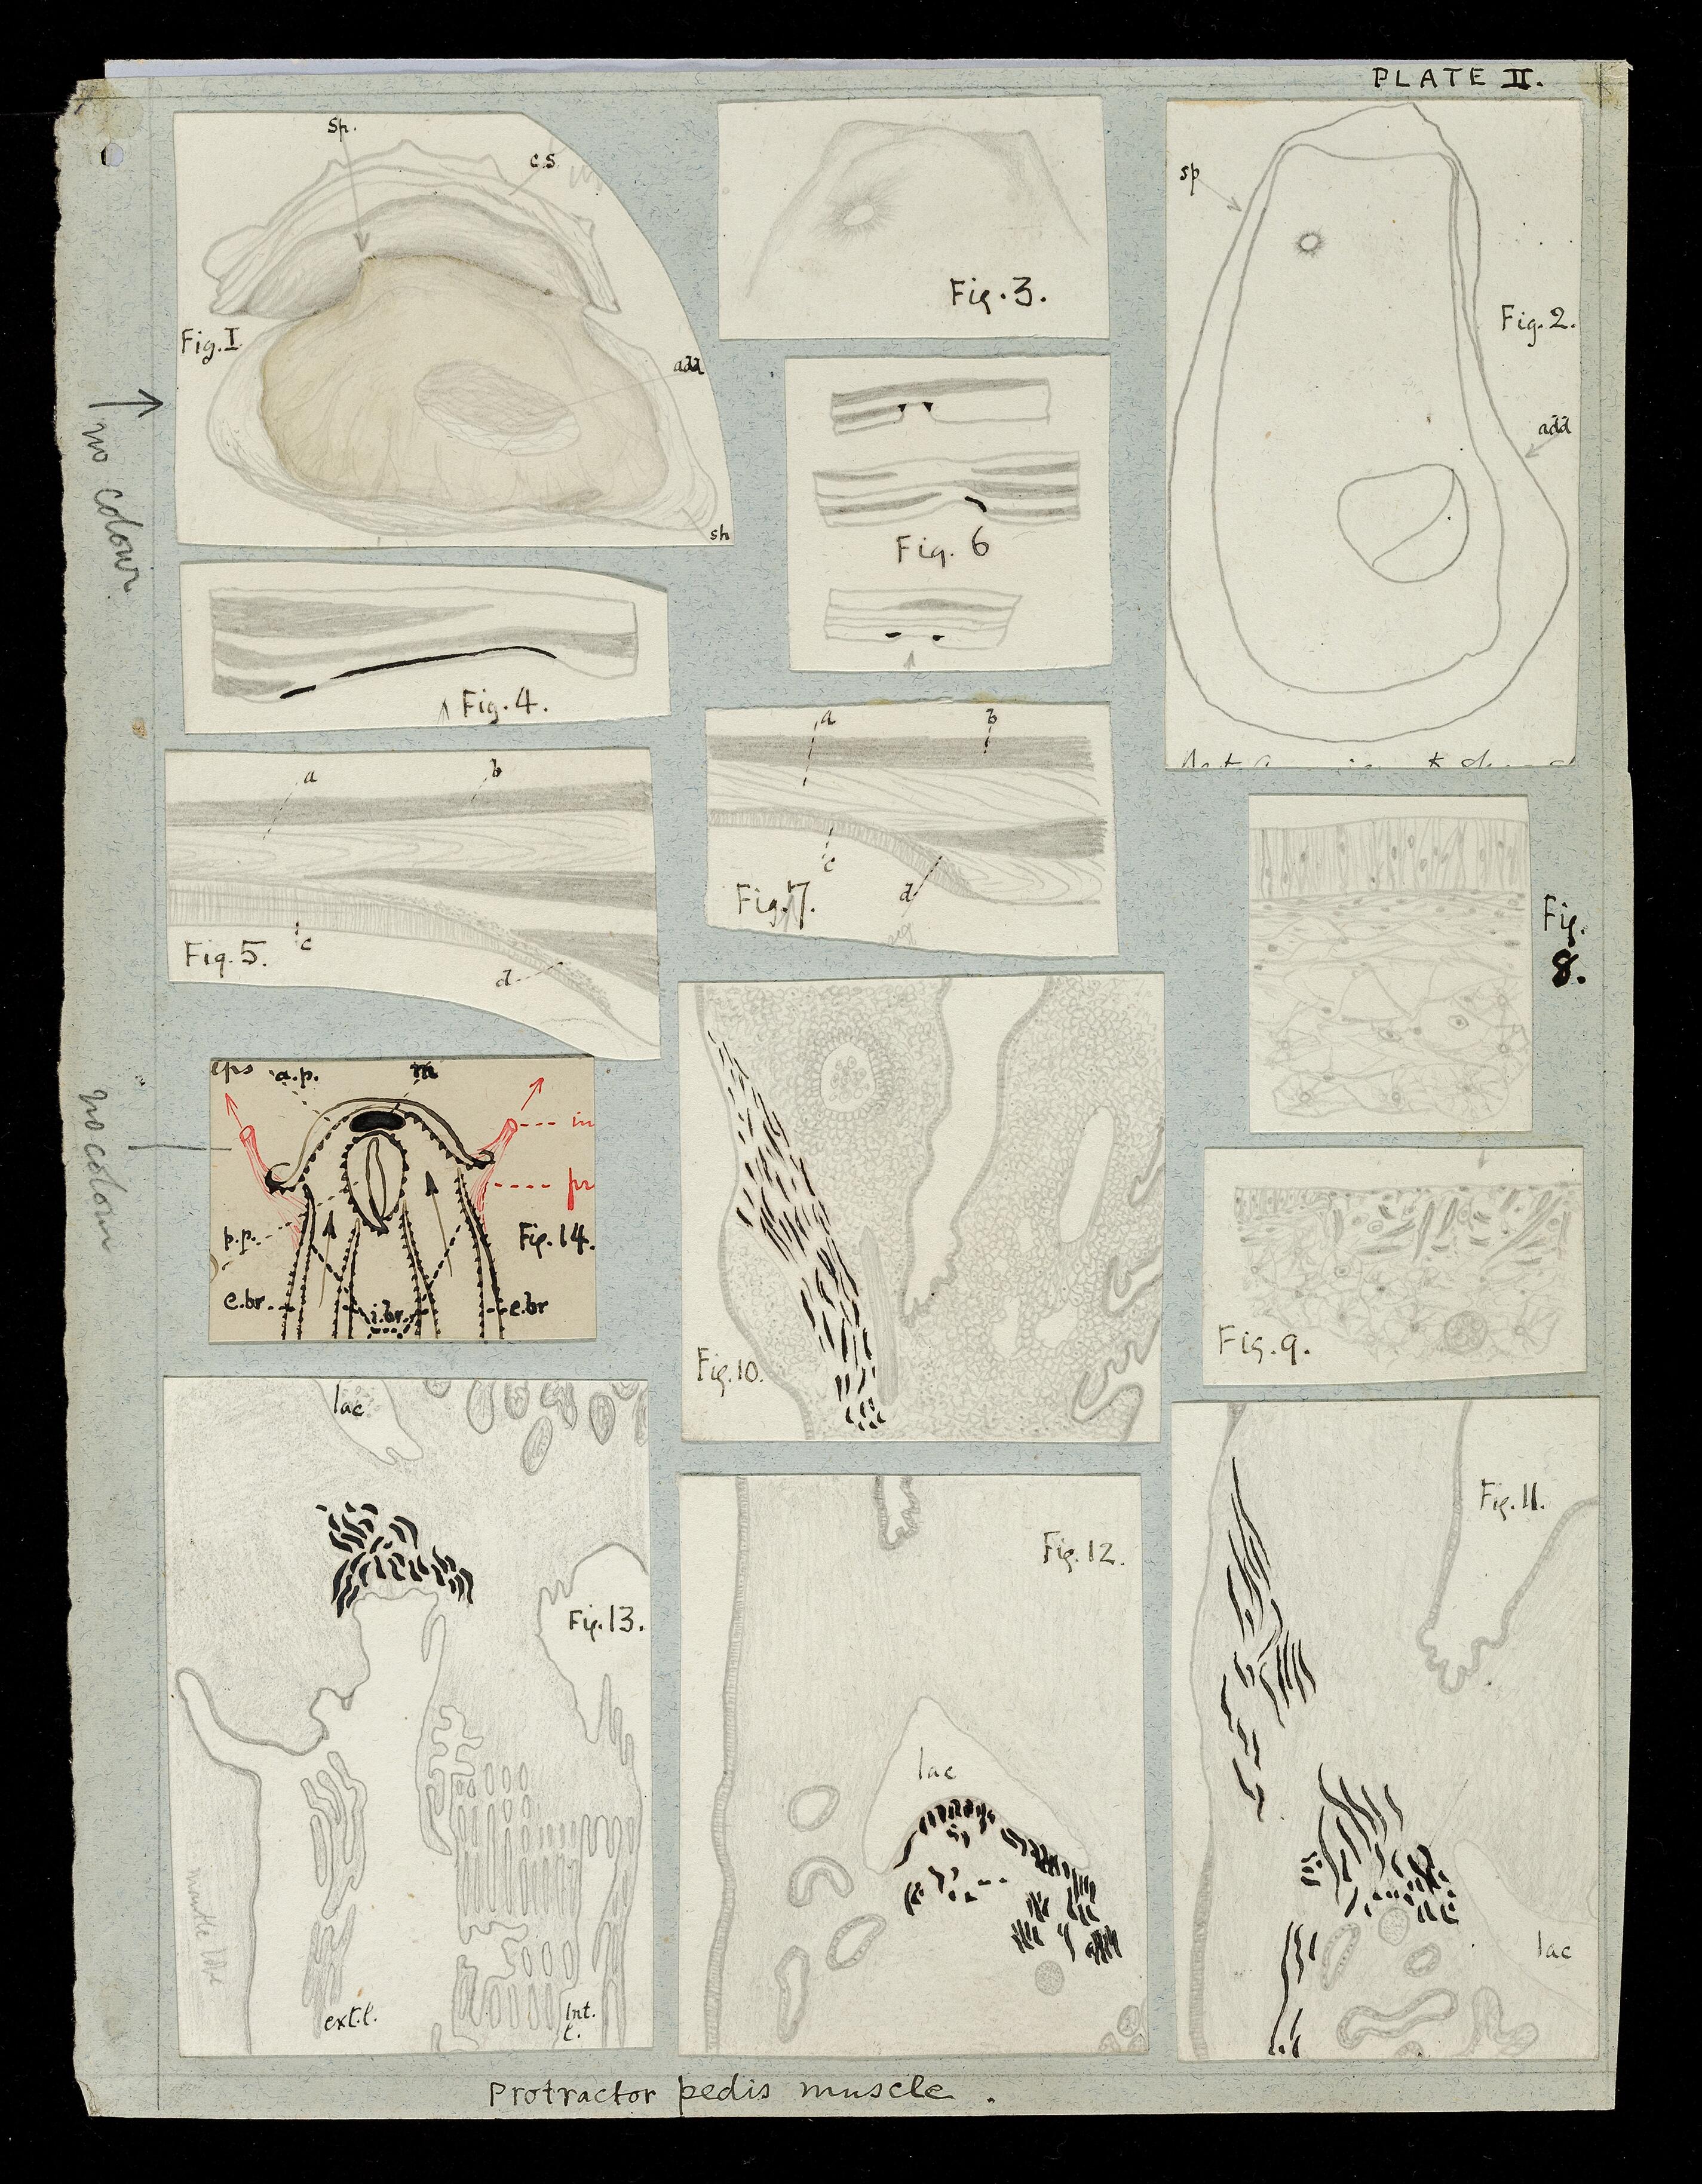 PLATE II.
sp.
c.s
Fig. I
add
sh
Fig. 3.
sp
Fig. 2.
add
no colour
Fig. 6
Fig. 4.
a
b
Fig. 5.
c
d
a
b
c
d
Fig. 7.
Fig.
8.
eps
a.p.
m
in
pr
p.p.
Fig. 14.
e.br.
i.br.
e.br
no colour
Fig. 10.
Fig. 9.
lac
Fig. 13.
mantle lobe
ext.l.
Int.
l.
Fig. 12.
lac
Fig. 11.
lac
Protractor pedis muscle.